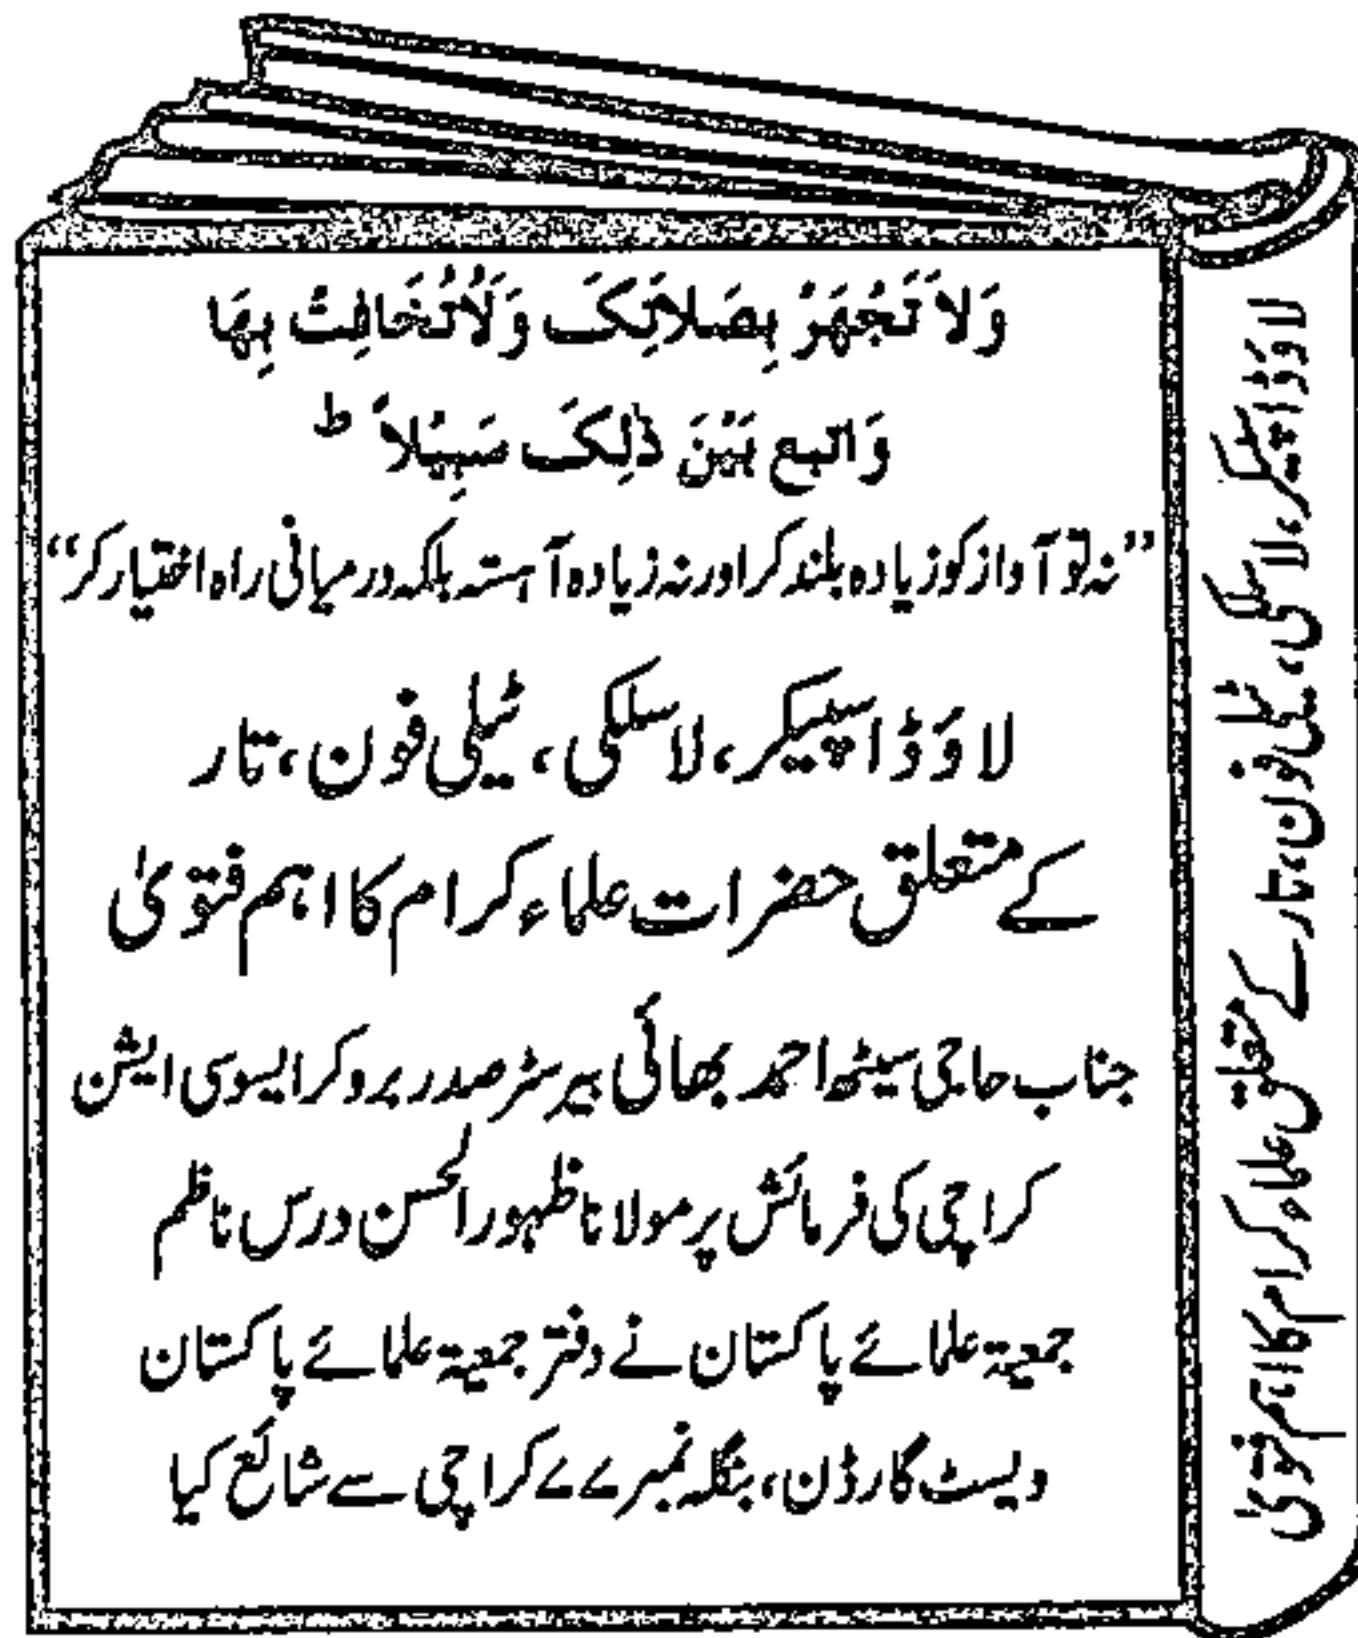 وَلاَ تَجْهَرْ بِصَلاَتِکَ وَلاَ تُخَافِتْ بِهَا
وَاتبع بَيْنَ ذٰلِکَ سَبِيْلاً ط
”نہ تو آواز کو زیادہ بلند کر اور نہ زیادہ آہستہ بلکہ درمیانی راہ اختیار کر“
لاؤڈ اسپیکر، لاسلکی، ٹیلی فون، تار
کے متعلق حضرات علماء کرام کا اہم فتویٰ
جناب حاجی سیٹھ احمد بھائی بیرسٹر صدر بروکر ایسوسی ایشن
کراچی کی فرمائش پر مولانا ظہور الحسن درس ناظم
جمعیۃ علمائے پاکستان نے دفتر جمعیۃ علمائے پاکستان
ویسٹ گارڈن، بنگلہ نمبر ۷۷ کراچی سے شائع کیا
لاؤڈ اسپیکر، لاسلکی، ٹیلی فون، تار کے متعلق علماء کرام کا اہم فتویٰ